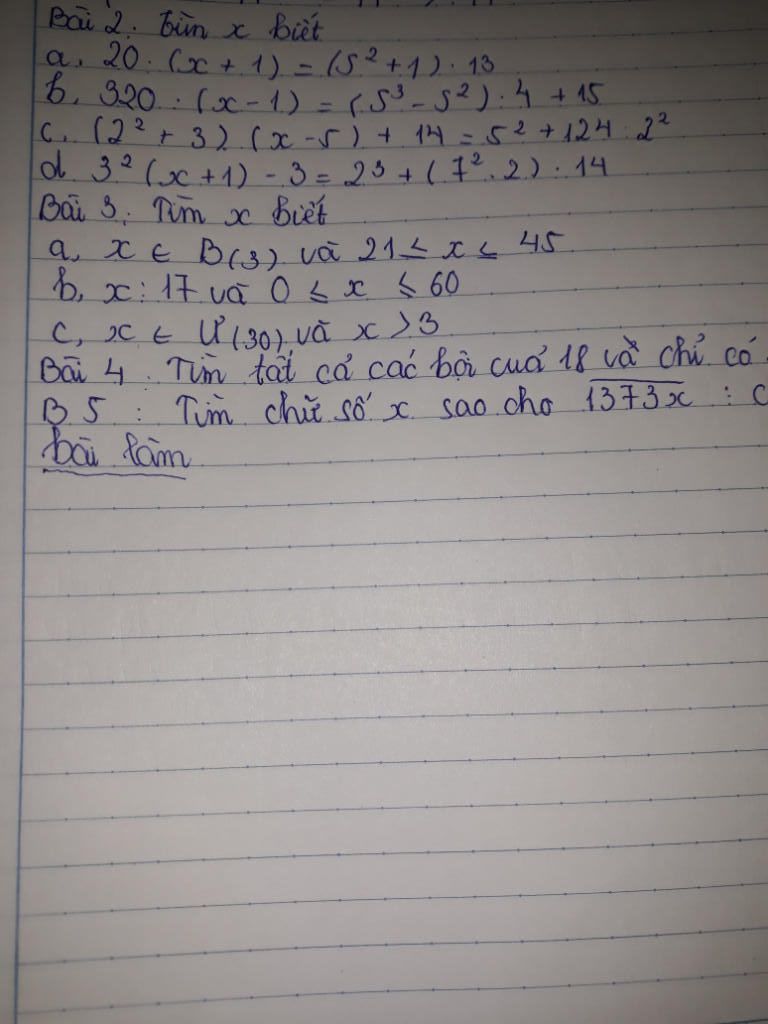 Bài 2. tìm x biết
a, 20 : (x + 1) = (5² + 1) : 13
b, 320 : (x - 1) = (5³ - 5²) : 4 + 15
c, (2² + 3) (x - 5) + 14 = 5² + 124 : 2²
d. 3² (x + 1) - 3 = 2³ + (7² . 2) : 14
Bài 3. Tìm x biết
a, x ∈ B(3) và 21 ≤ x ≤ 45
b, x : 17 và 0 ≤ x ≤ 60
c, x ∈ Ư(30) và x > 3
Bài 4 . Tìm tất cả các bội của 18 và chỉ có
B 5 : Tìm chữ số x sao cho 1373x :
bài làm